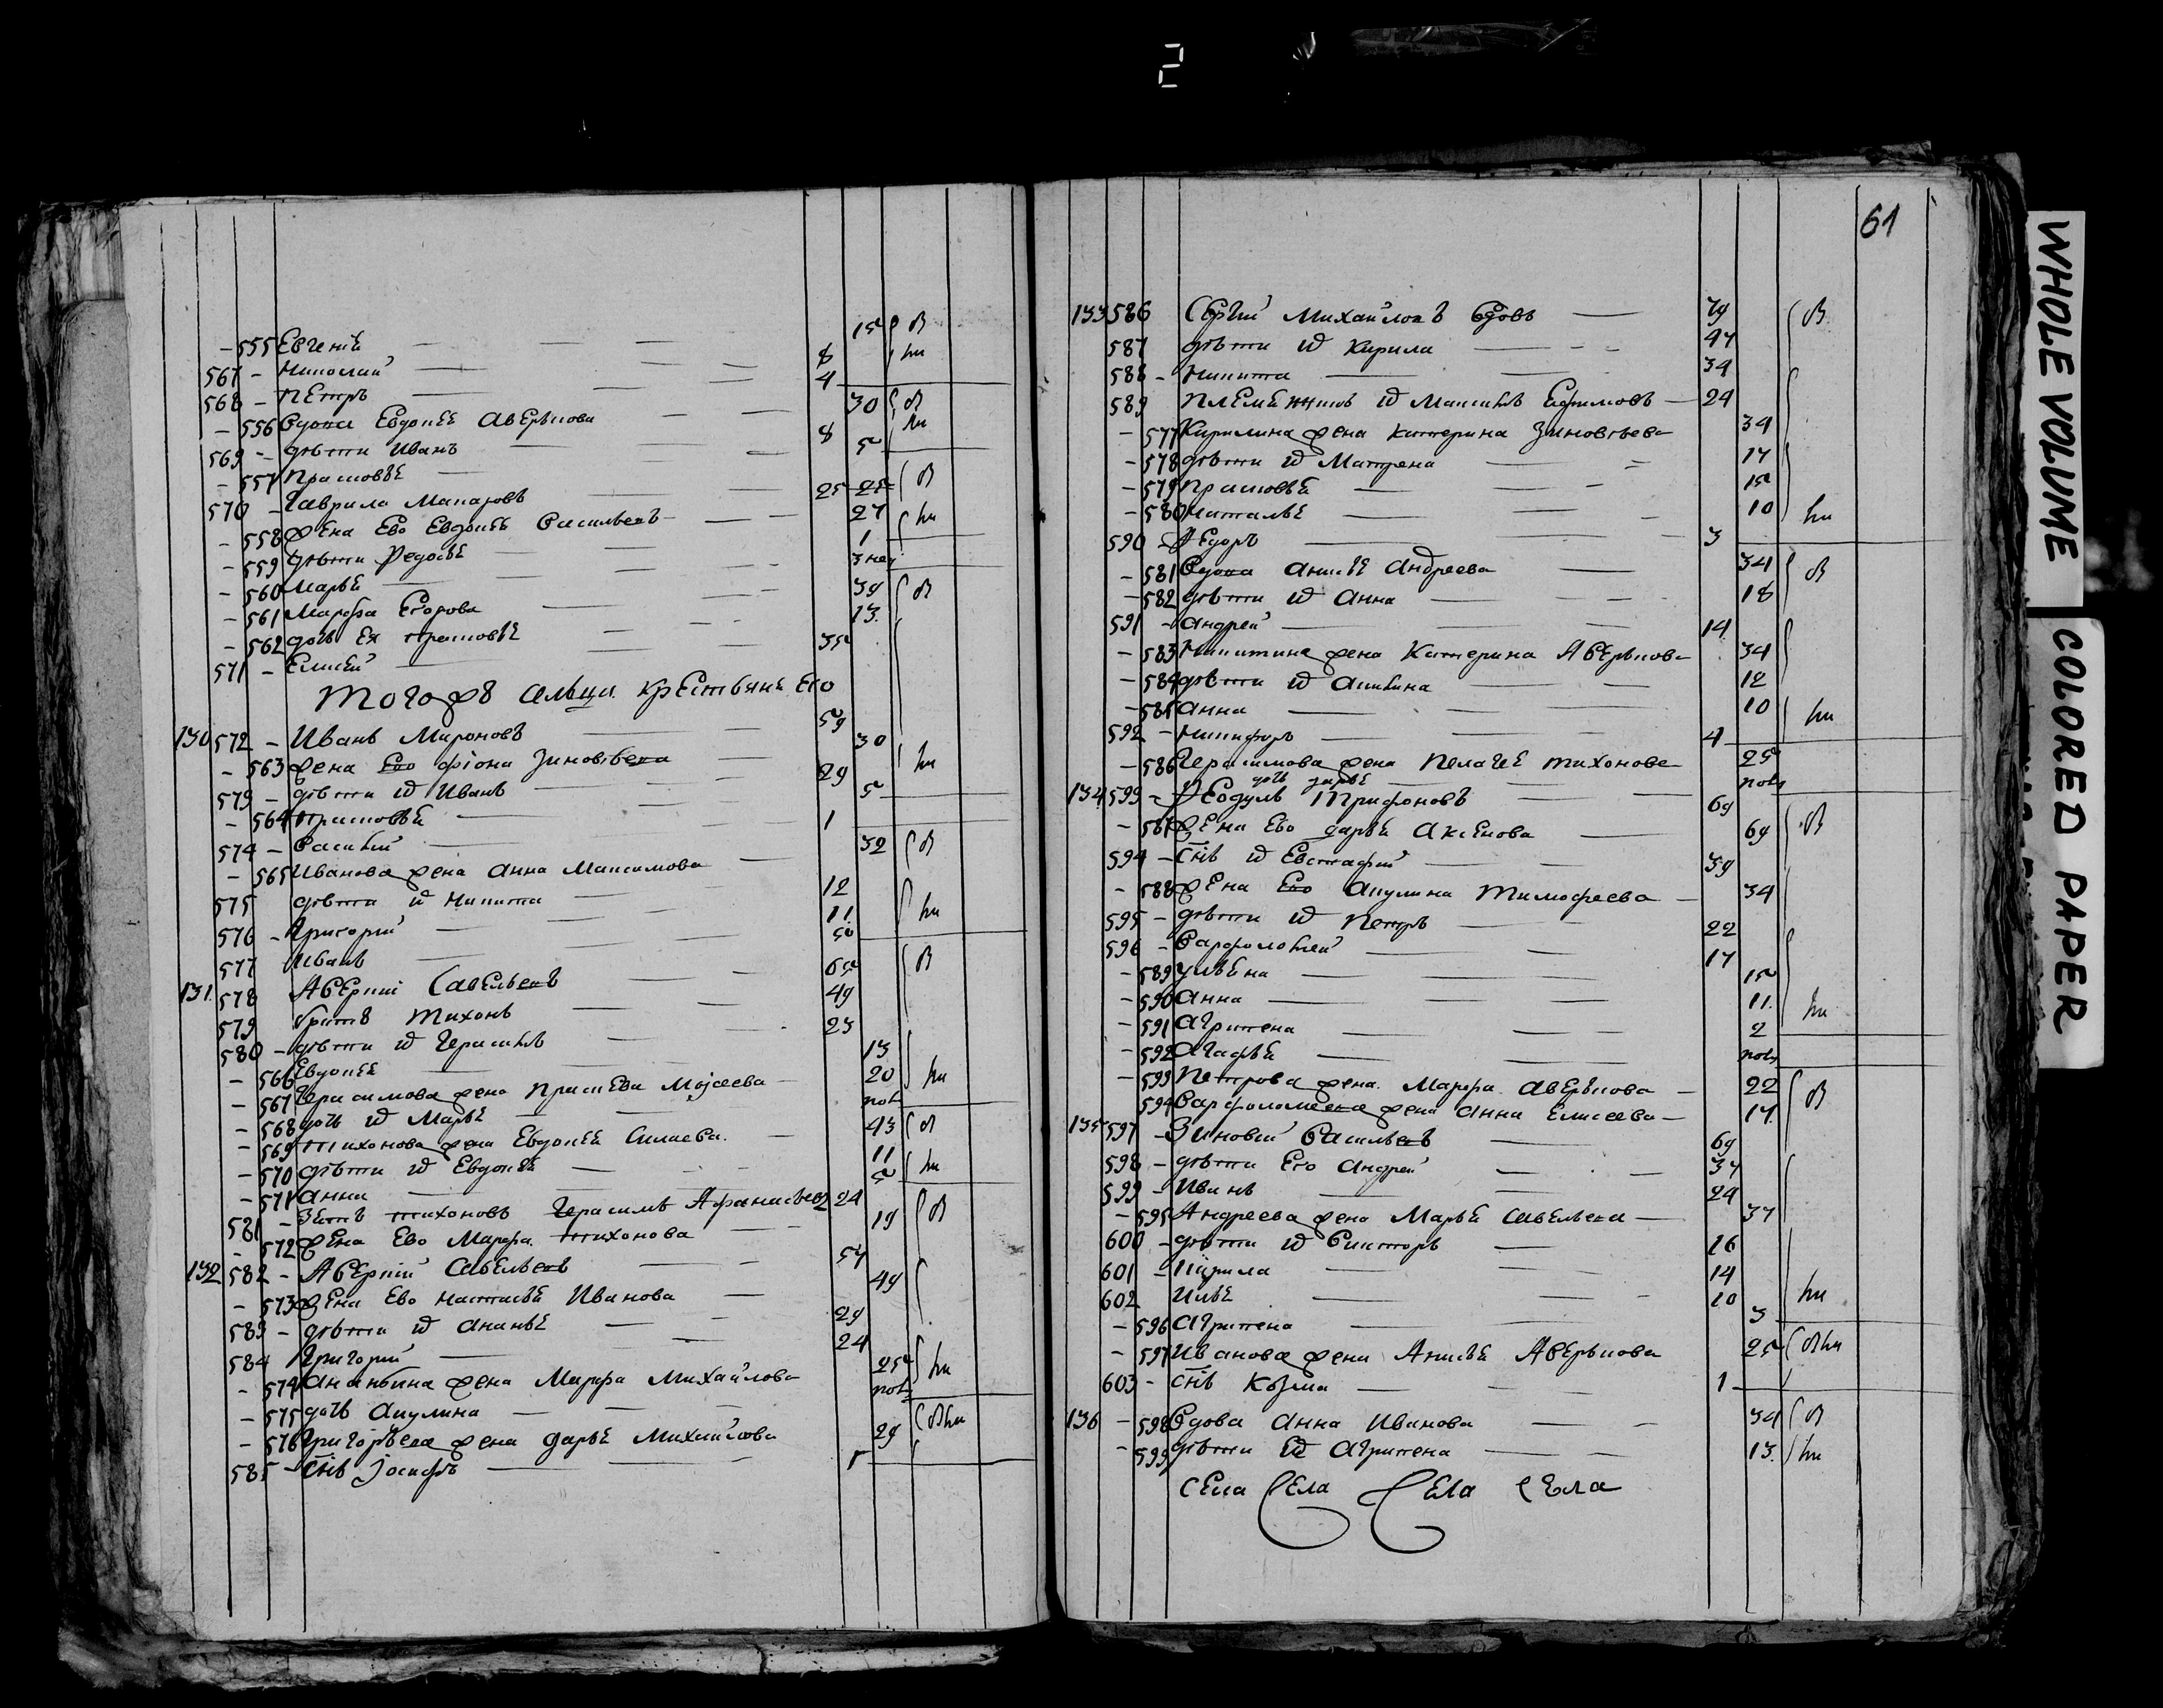 2
61
WHOLE VOLUME
COLORED PAPER
– 555 Евгенія 15
567 – Николай 8
568 – Петръ 4
– 556 Вдова Евдокія Аверькова 30
569 – дѣти Иванъ 8
– 557 Прасковья 5
570 – Гаврила Макаровъ 25
– 558 жена Ево Евдокія Васильева 27
– 559 дѣти Федосья 1
– 560 Марья
– 561 Марфа Егорова 39
– 562 дочь Ея Прасковья 13
571 – Елисей 35
Тогожъ сельца крестьяне Его
130 572 – Иванъ Мироновъ 59
– 563 жена Ево Фіона Зиновьева 30
573 – дѣти Иванъ 29
– 564 Прасковья 5
574 – Василий 1
– 565 Иванова жена Анна Максимова 32
575 дѣти Никита 12
576 – Григорій 11
577 Иванъ 5
131 578 Аверкий Савельевъ 65
579 братъ Тихонъ 49
580 – дѣти Герасимъ 23
– 566 Евдокія 13
– 567 Герасимова жена Мојсеева 20
– 568 дочь Марья
– 569 Тихонова жена Евдокія Силаева 43
– 570 дѣти Евдокія 11
– 571 Анна 5
581 – Зять Тихоновъ Герасимъ Афанасьевъ 24
– 572 жена Ево Марфа Тихонова 19
132 582 – Аверкий Савельевъ 57
– 573 жена Ево Настасья Иванова 49
583 – дѣти Ананья 29
584 Григорій 24
– 574 Ананьина жена Марфа Михайлова 25
– 575 дочь Акулина
– 576 Григорьева жена Дарья Михайлова 29
585 – снъ Јосифъ
133 586 Сергій Михайловъ вдовъ 79
587 дѣти Кирила 47
588 – Никита 34
589 Племянникъ Максимъ Ефимовъ 24
– 577 Кирилина жена Катерина Зиновьева 34
– 578 дѣти Матрена 17
– 579 Прасковья 15
– 580 Наталья 10
590 – Федоръ 3
– 581 Вдова Анисья Андреева 34
– 582 дѣти Анна 18
591 – Андрей 14
– 583 Никитина жена Катерина Аверькова 34
– 584 дѣти Акилина 12
– 585 Анна 10
592 – Никифоръ 4
– 586 Герасимова жена Пелагея Тихонова 25
дочь Дарья
134 593 – Федулъ Трифоновъ 69
– 587 жена Ево Дарья Аксенова 69
594 – снъ Евстафій 39
– 588 жена Ево Акулина Тимофеева 34
595 – дѣти Петръ 22
596 – Варфоломей 17
– 589 Ульяна 15
– 590 Анна 11
– 591 Агрипена 2
– 592 Агафья
– 593 Петрова жена Марфа Аверькова 22
594 Варфоломеева жена Анна Елисеева 17
135 597 – Зиновей Васильевъ 69
598 – дѣти Его Андрей 37
599 – Иванъ 24
– 595 Андреева жена Марья Савельева 37
600 – дѣти Викторъ 16
601 – Кирила 14
602 Илья 10
– 596 Агрипена 3
– 597 Иванова жена Анисья Аверькова 25
603 – снъ Козма 1
136 – 598 Вдова Анна Иванова 34
– 599 дѣти Агрипена 13
села Села Села села